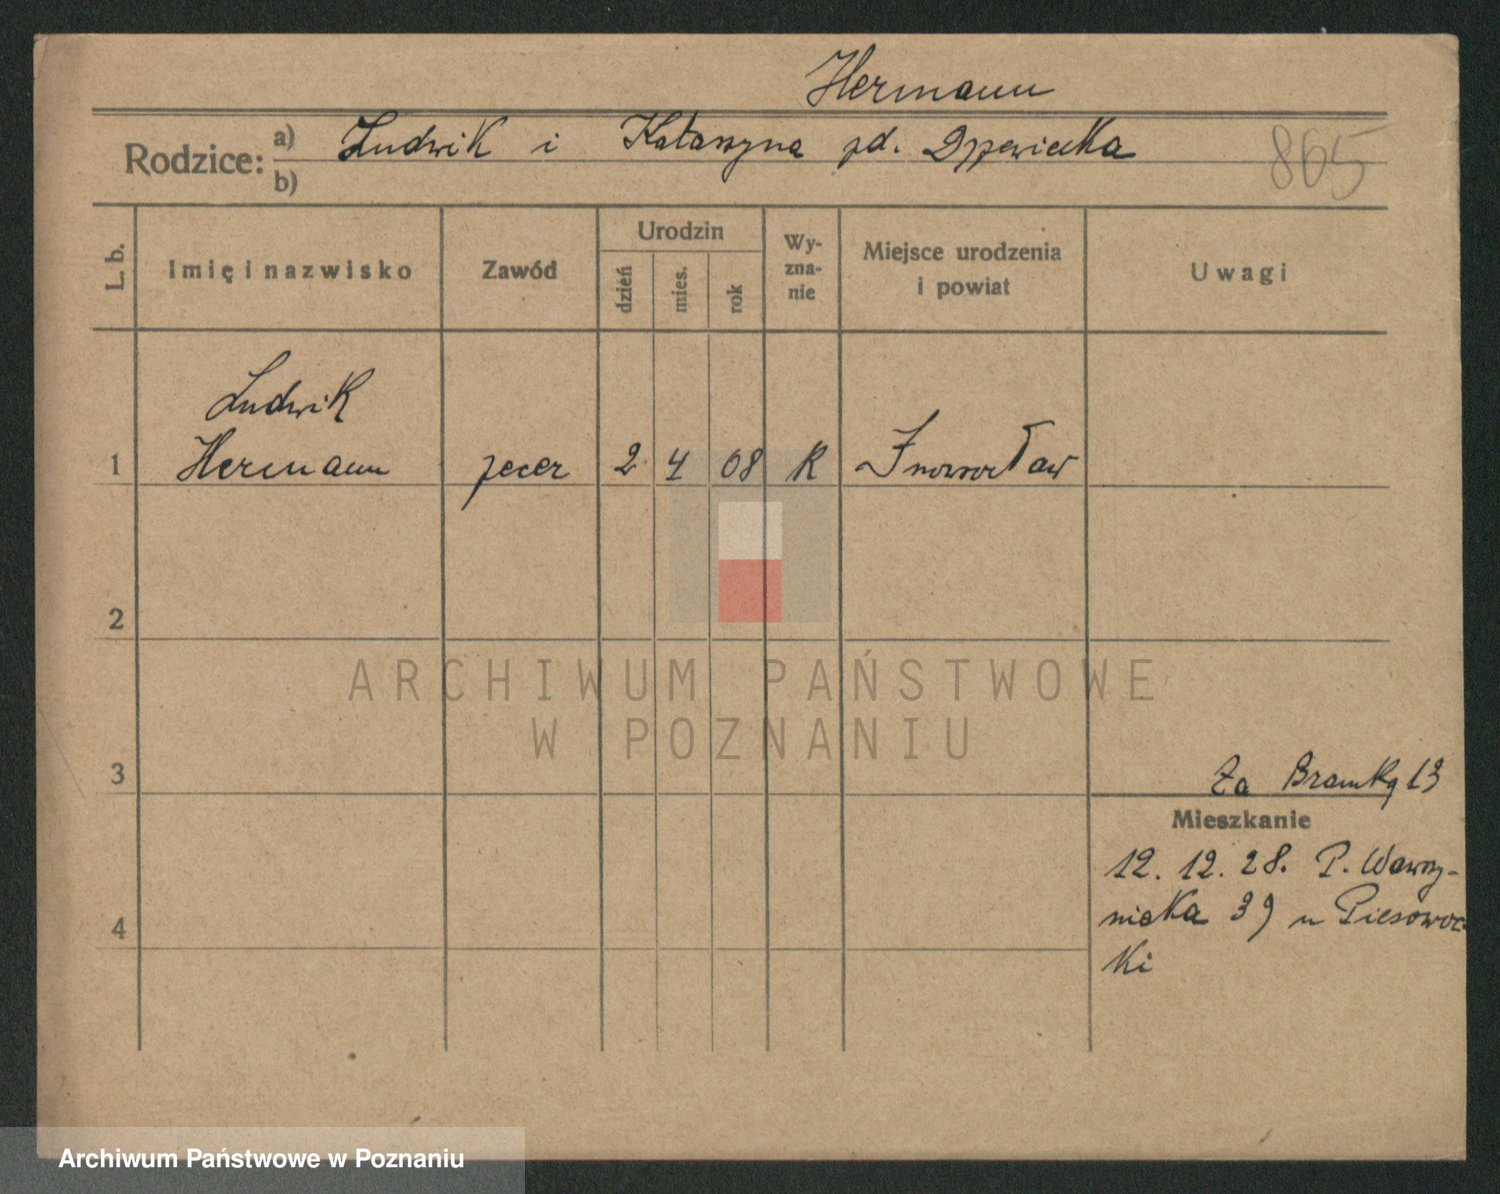 Hermann
Rodzice: a) Ludwik i Katarzyna zd.
b)
865
L. b.
Imię i nazwisko
Zawód
Urodzin
dzień
mies.
rok
Wy-
zna-
nie
Miejsce urodzenia
i powiat
Uwagi
Ludwik
1 Hermann zecer 2 4 08 K Inowrocław
2
ARCHIWUM PAŃSTWOWE
W POZNANIU
3
Za Bramką 13
Mieszkanie
12. 12. 28. P. Wawrzy-
niaka 39 u
4
ki
Archiwum Państwowe w Poznaniu